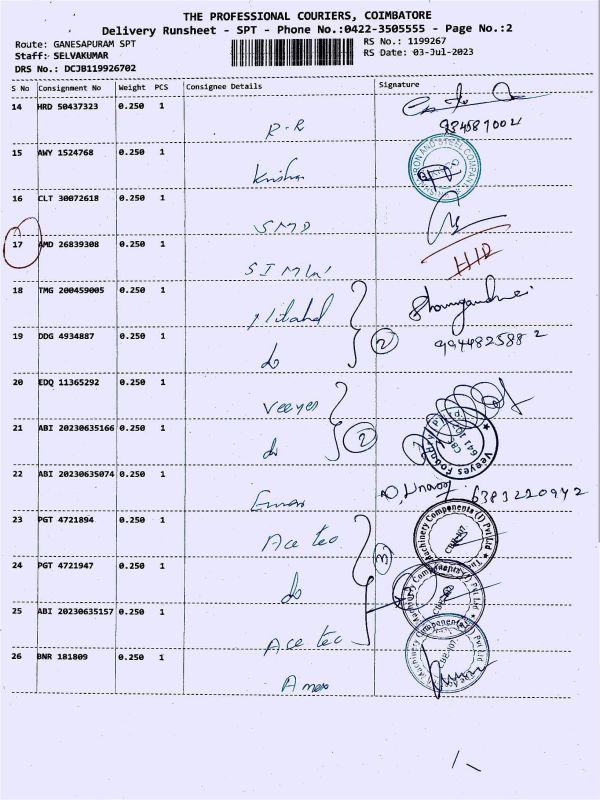 THE PROFESSIONAL COURIERS, COIMBATORE
Delivery Runsheet - SPT - Phone No.:0422-3505555 - Page No.:2
Route: GANESAPURAM SPT
RS No.: 1199267
Staff: SELVAKUMAR
RS Date: 03-Jul-2023
DRS No.: DCJB119926702
S No Consignment No Weight PCS Consignee Details Signature
14 HRD 50437323 0.250 1
R-R
15 AWY 1524768 0.250 1
Krishna
16 CLT 30072618 0.250 1
SMD
17 AMD 26839308 0.250 1
HID
18 TMG 200459005 0.250 1
19 DDG 4934887 0.250 1
do 2 9944825882
20 EDQ 11365292 0.250 1
Veeyes
21 ABI 20230635166 0.250 1
do 2
22 ABI 20230635074 0.250 1
6383220942
23 PGT 4721894 0.250 1
Ace tec 3
24 PGT 4721947 0.250 1
do
25 ABI 20230635157 0.250 1
Ace tec
26 BNR 181809 0.250 1